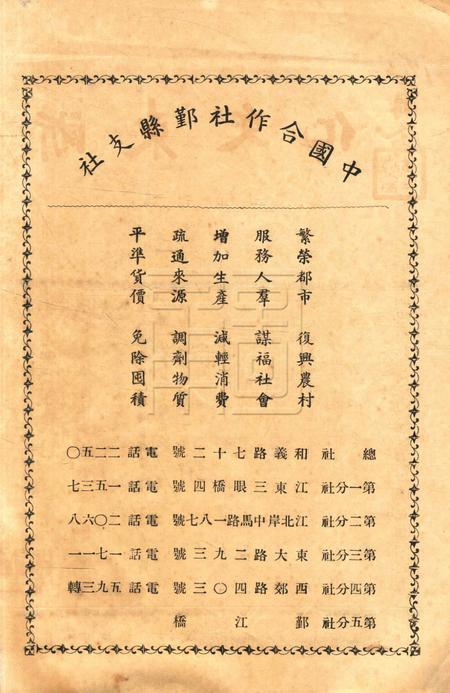 中國合作社鄞縣支社
繁榮都市 復興農村
服務人羣 謀福社會
增加生產 減輕消費
疏通來源 調劑物質
平準貨價 免除囤積
總社 和義路七十二號 電話二二五〇
第一分社 江東三眼橋四號 電話一五三七
第二分社 江北岸中馬路一八七號 電話二〇六八
第三分社 東大路二九三號 電話一七一一
第四分社 西郊路四〇三號 電話五九三轉
第五分社 鄞江橋